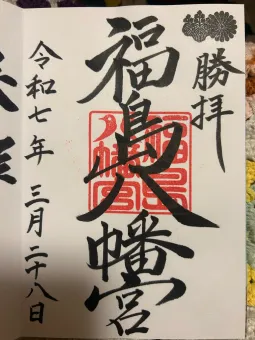 勝拝
福島八幡宮
令和七年 三月二十八日